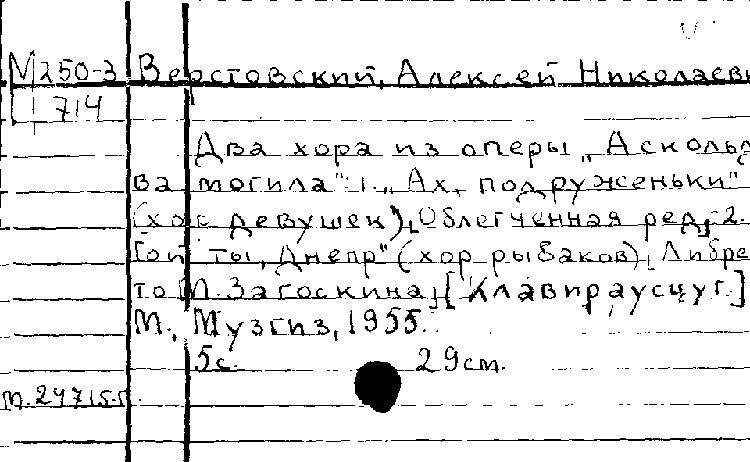 М250-3 Верстовский, Алексей Николаеви
714
Два хора из оперы „Асколь
ва могила": 1. „Ах, подруженьки"
(хор девушек), Облегченная ред., 2.
Гой ты, Днепр" (хор рыбаков), Либре
то М. Загоскина, [Клавираусцуг.]
М., Музгиз, 1955.
5с. 29см.